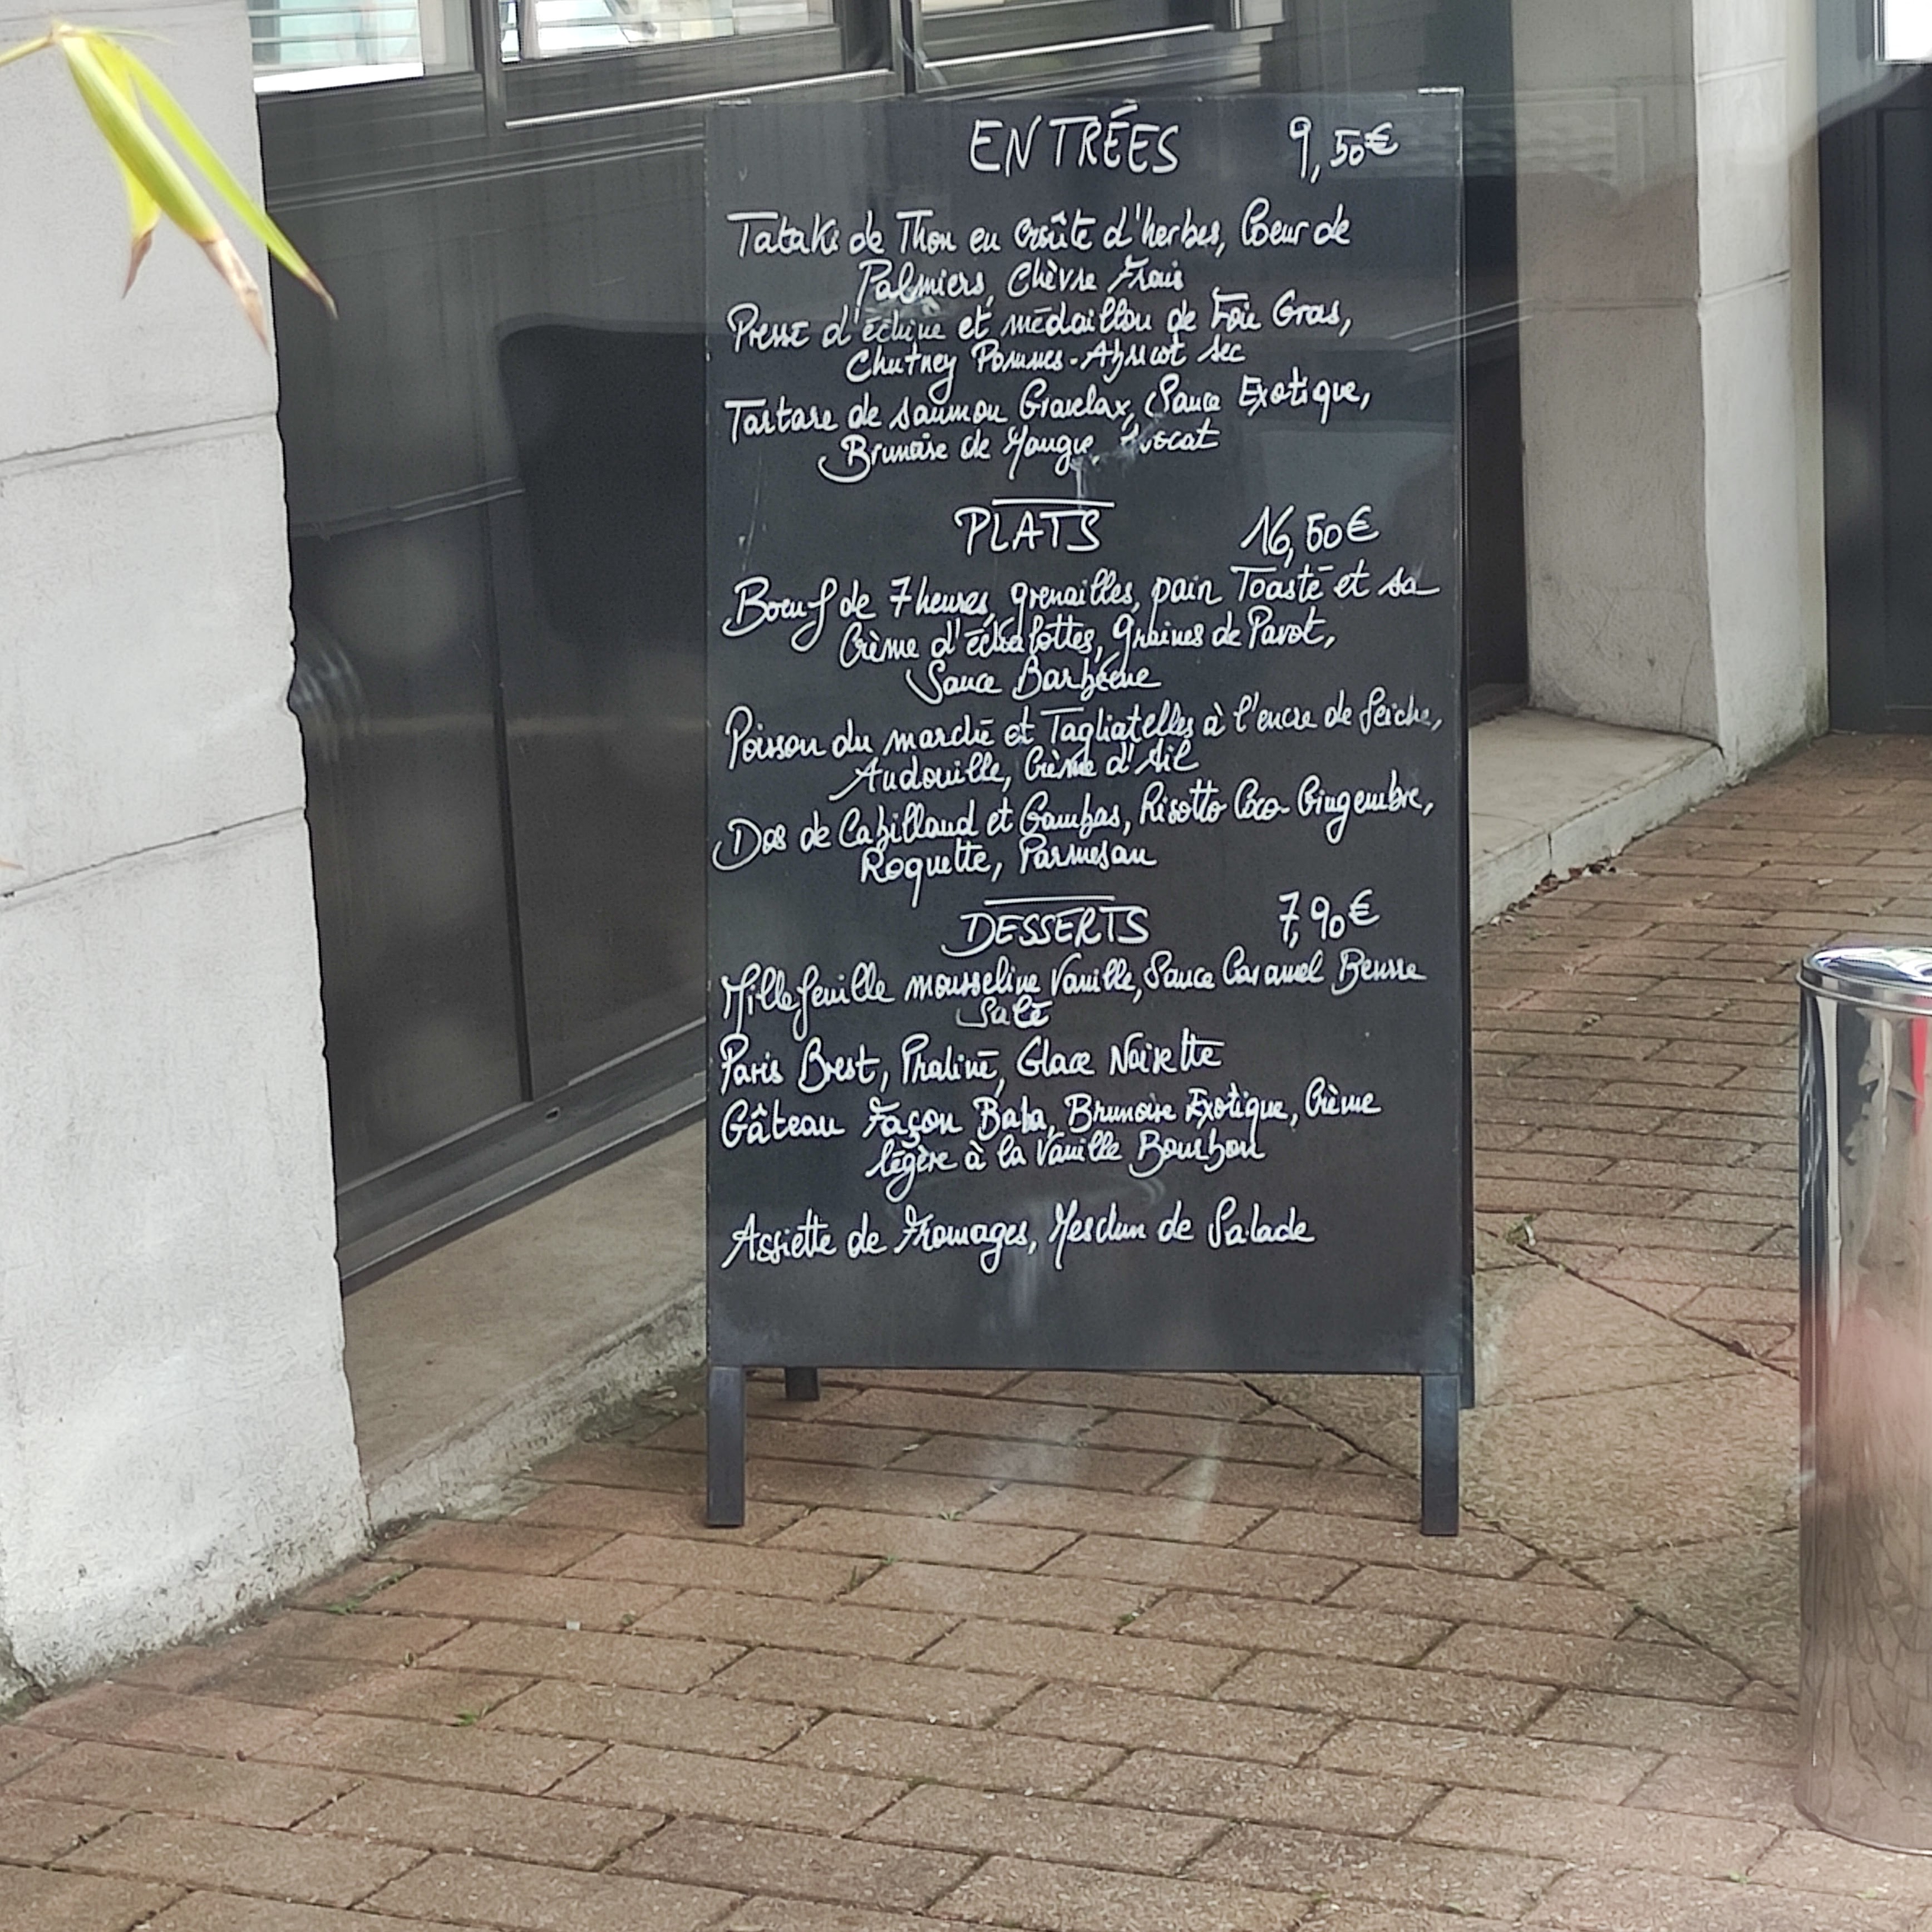 ENTRÉES 9,50€
Tataki de Thon en croûte d'herbes, Coeur de
Palmiers, Chèvre Frais
Pressé d'échine et médaillon de Foie Gras,
Chutney Pommes-Abricot sec
Tartare de saumon Gravelax, Sauce Exotique,
Brunoise de Mangue, Avocat
PLATS 16,50€
Boeuf de 7 heures, grenailles, pain Toasté et sa
Crème d'échalottes, graines de Pavot,
Sauce Barbecue
Poisson du marché et Tagliatelles à l'encre de Seiche,
Andouille, Crème d'Ail
Dos de Cabillaud et Gambas, Risotto Coco-Gingembre,
Roquette, Parmesan
DESSERTS 7,90€
Millefeuille mousseline Vanille, Sauce Caramel Beurre
Salé
Paris Brest, Praliné, Glace Noisette
Gâteau Façon Baba, Brunoise Exotique, Crème
légère à la Vanille Bourbon
Assiette de Fromages, Mesclun de Salade